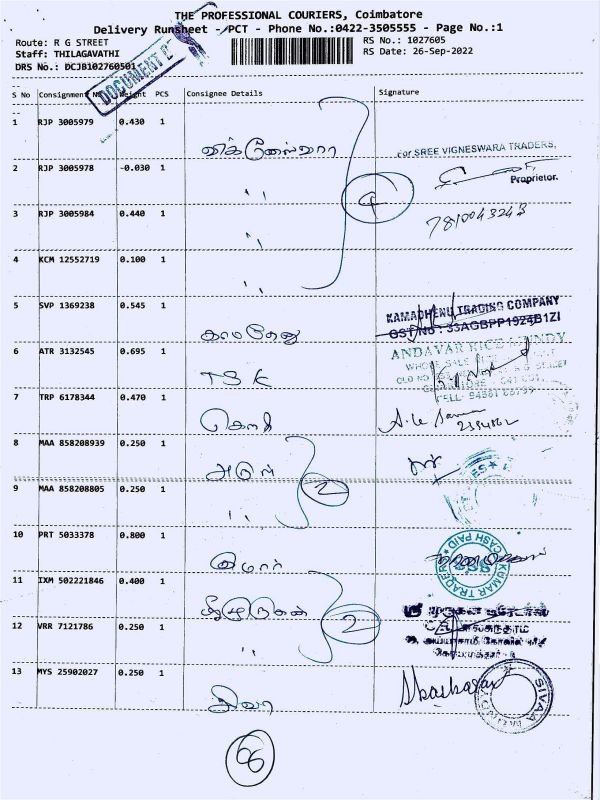 THE PROFESSIONAL COURIERS, Coimbatore
Delivery Runsheet - PCT - Phone No.:0422-3505555 - Page No.:1
Route: R G STREET
RS No.: 1027605
Staff: THILAGAVATHI
RS Date: 26-Sep-2022
DRS No.: DCJB102760501
DOCUMENT
S No Consignment No Weight PCS Consignee Details Signature
1 RJP 3005979 0.430 1 விக்னேஸ்வரா
For SREE VIGNESWARA TRADERS,
2 RJP 3005978 -0.030 1 "
Proprietor.
4
3 RJP 3005984 0.440 1 "
7810043243
4 KCM 12552719 0.100 1 "
KAMADHENU TRADING COMPANY
GST No : 33AGBPP1924B1ZI
5 SVP 1369238 0.545 1 காமதேனு
ANDAVAR RICE MUNDY
6 ATR 3132545 0.695 1 TSK
7 TRP 6178344 0.470 1 கௌரி
8 MAA 858208939 0.250 1 அருள்
2
9 MAA 858208805 0.250 1 "
10 PRT 5033378 0.800 1 குமார்
KUMAR TRADERS
CASH PAID
11 IXM 502221846 0.400 1
ஸ்ரீ முருகன் டிரேடர்ஸ்
2
12 VRR 7121786 0.250 1 "
13 MYS 25902027 0.250 1 சிவா
SIVAA
6